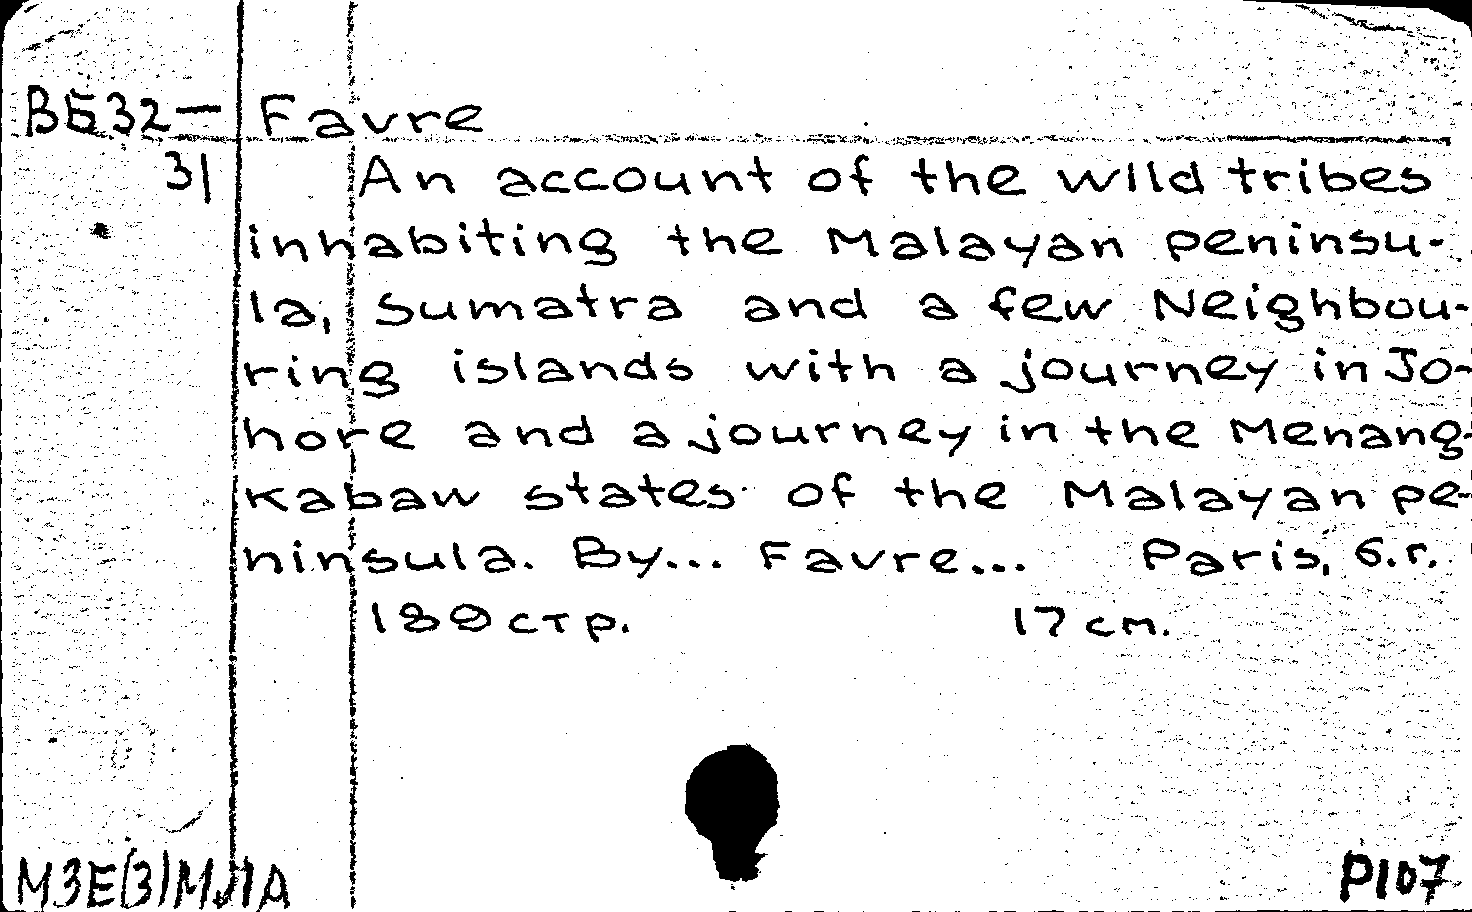 ВБ32— Favre
31 An account of the wild tribes
inhabiting the Malayan peninsu-
la, Sumatra and a few Neighbou-
ring islands with a journey in Jo-
hore and a journey in the Menang-
kabaw states of the Malayan pe-
ninsula. By... Favre... Paris, б.г.
189 стр. 17 см.
МЗЕ(3)МЛА P107